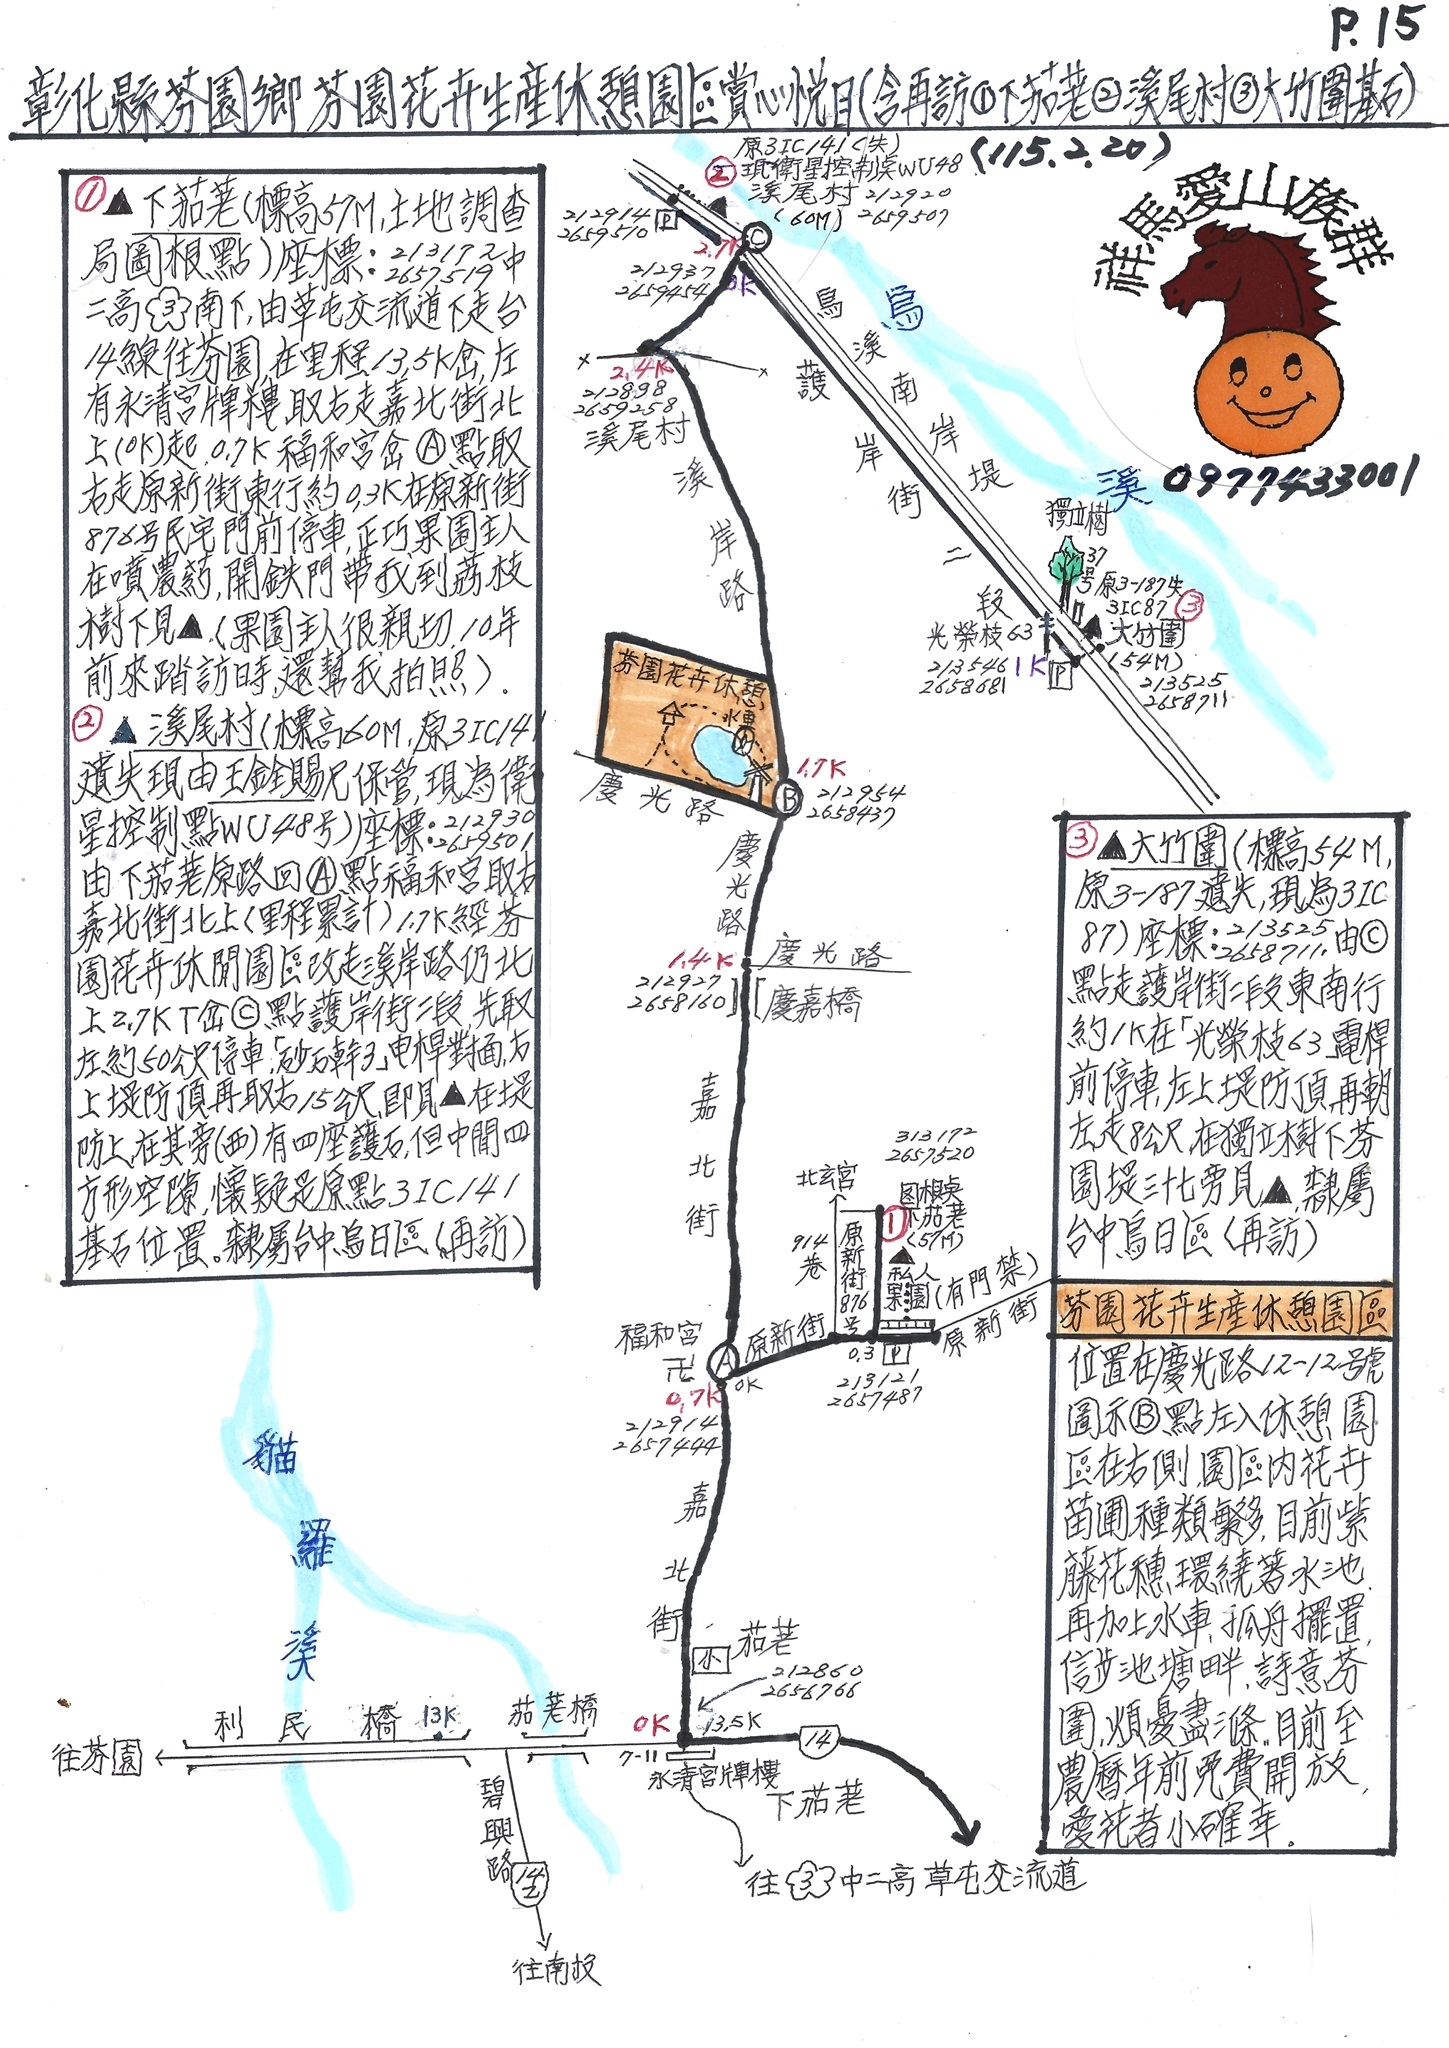 P.15
彰化縣芬園鄉芬園花卉生產休憩園區賞心悅目(含再訪①下茄荖②溪尾村③大竹圍基石)
(115.2.20)
祥馬愛山族群
0977433001
① ▲下茄荖(標高57M,土地調查
局圖根點)座標:213172
2657519中
二高③南下,由草屯交流道下走台
14線往芬園,在里程13.5K岔,左
有永清宮牌樓,取右走嘉北街北
上(0K)起,0.7K福和宮岔Ⓐ點取
右走原新街東行約0.3K在原新街
876号民宅門前停車,正巧果園主人
在噴農葯,開鉄門帶我到荔枝
樹下見▲.(果園主人很親切,10年
前來踏訪時,還幫我拍照).
② ▲溪尾村(標高60M,原3IC141
遺失現由王銓賜兄保管,現為衛
星控制點WU48号)座標:212930
2659501
由下茄荖原路回Ⓐ點福和宮取右
嘉北街北上(里程累計)1.7K經芬
園花卉休閒園區改走溪岸路仍北
上2.7K T岔Ⓒ點護岸街二段,先取
左約50公尺停車「砂石幹3」电桿對面,右
上堤防頂再取右15公尺,即見▲在堤
防上,在其旁(西)有四座護石,但中間四
方形空隙,懷疑是原點3IC141
基石位置。隸屬台中烏日區(再訪)
原3IC141(失)
② 現衛星控制點WU48
溪尾村 212920
(60M) 2659507
212914
2659510 P
Ⓒ
2.7K
0K
212937
2659454
2.4K
212898
2659258
溪尾村
溪岸路
烏溪
烏溪南岸堤
護岸街二段
獨立樹
37号
原3-187失
3IC87 ③
大竹圍
(54M)
213525
2658711
光榮枝63
213546
2658681
1K
P
芬園花卉休憩
水車
慶光路
Ⓑ
1.7K
212954
2658437
慶光路
1.4K
慶光路
212927
2658160
慶嘉橋
嘉北街
北玄宮
914巷
原新街876号
313172
2657520
图根点
① 下茄荖
(57M)
私人果園
(有門禁)
原新街
原新街
福和宮
卍
Ⓐ
0K
0.7K
212914
2657444
0.3
P
213121
2657487
嘉北街
小 茄荖
212860
2656766
0K
13.5K
14
7-11
永清宮牌樓
下茄荖
往③中二高草屯交流道
貓羅溪
利民橋
13K
茄荖橋
往芬園
碧興路
14乙
往南投
③ ▲大竹圍(標高54M,
原3-187遺失,現為3IC
87)座標:213525
2658711.由Ⓒ
點走護岸街二段東南行
約1K在「光榮枝63」電桿
前停車,左上堤防頂,再朝
左走8公尺,在獨立樹下芬
園堤三十七旁見▲,隸屬
台中烏日區(再訪)
芬園花卉生產休憩園區
位置在慶光路12-12号號
圖示Ⓑ點左入休憩園
區在右側,園區内花卉
苗圃種類繁多,目前紫
藤花穗環繞著水池,
再加上水車,孤舟擺置,
信步池塘畔,詩意芬
園,煩憂盡滌。目前至
農曆年前免費開放,
愛花者小確幸.